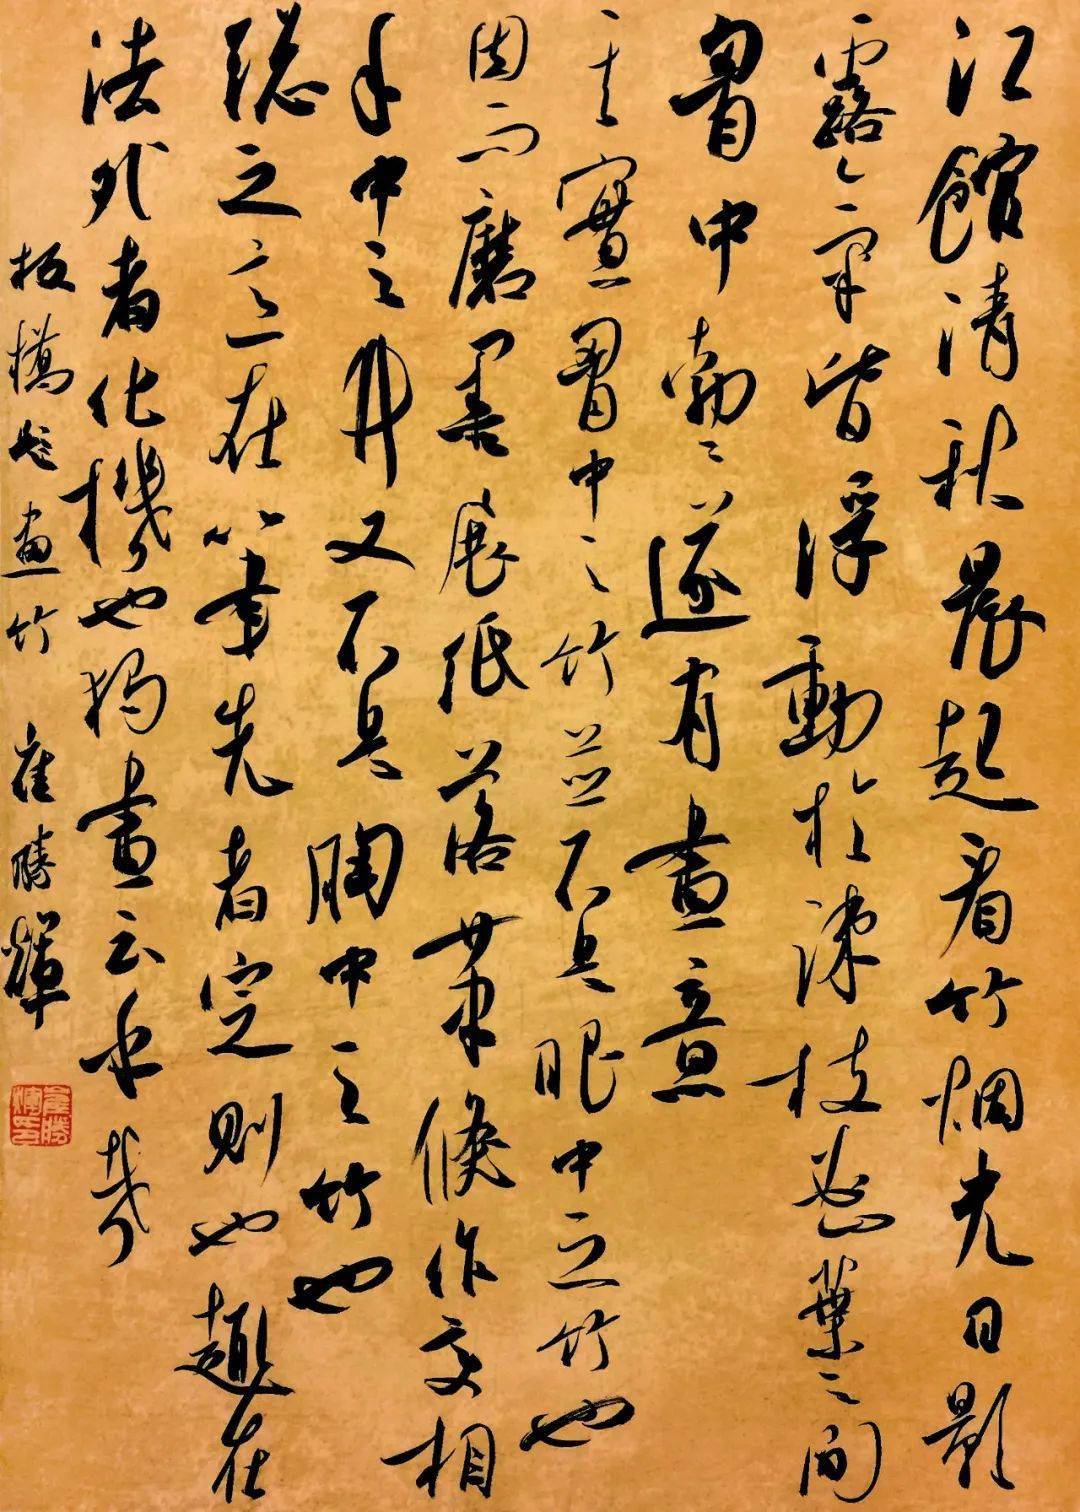 江館清秋晨起看竹烟光日影
露氣皆浮動於疎枝密葉之間
胷中勃勃遂有畫意
其實胷中之竹並不是眼中之竹也
因而磨墨展紙落筆倏作变相
手中之竹又不是胸中之竹也
總之意在筆先者定則也趣在
法外者化機也獨畫云乎哉
板橋題畫竹 崔勝輝
崔勝輝印